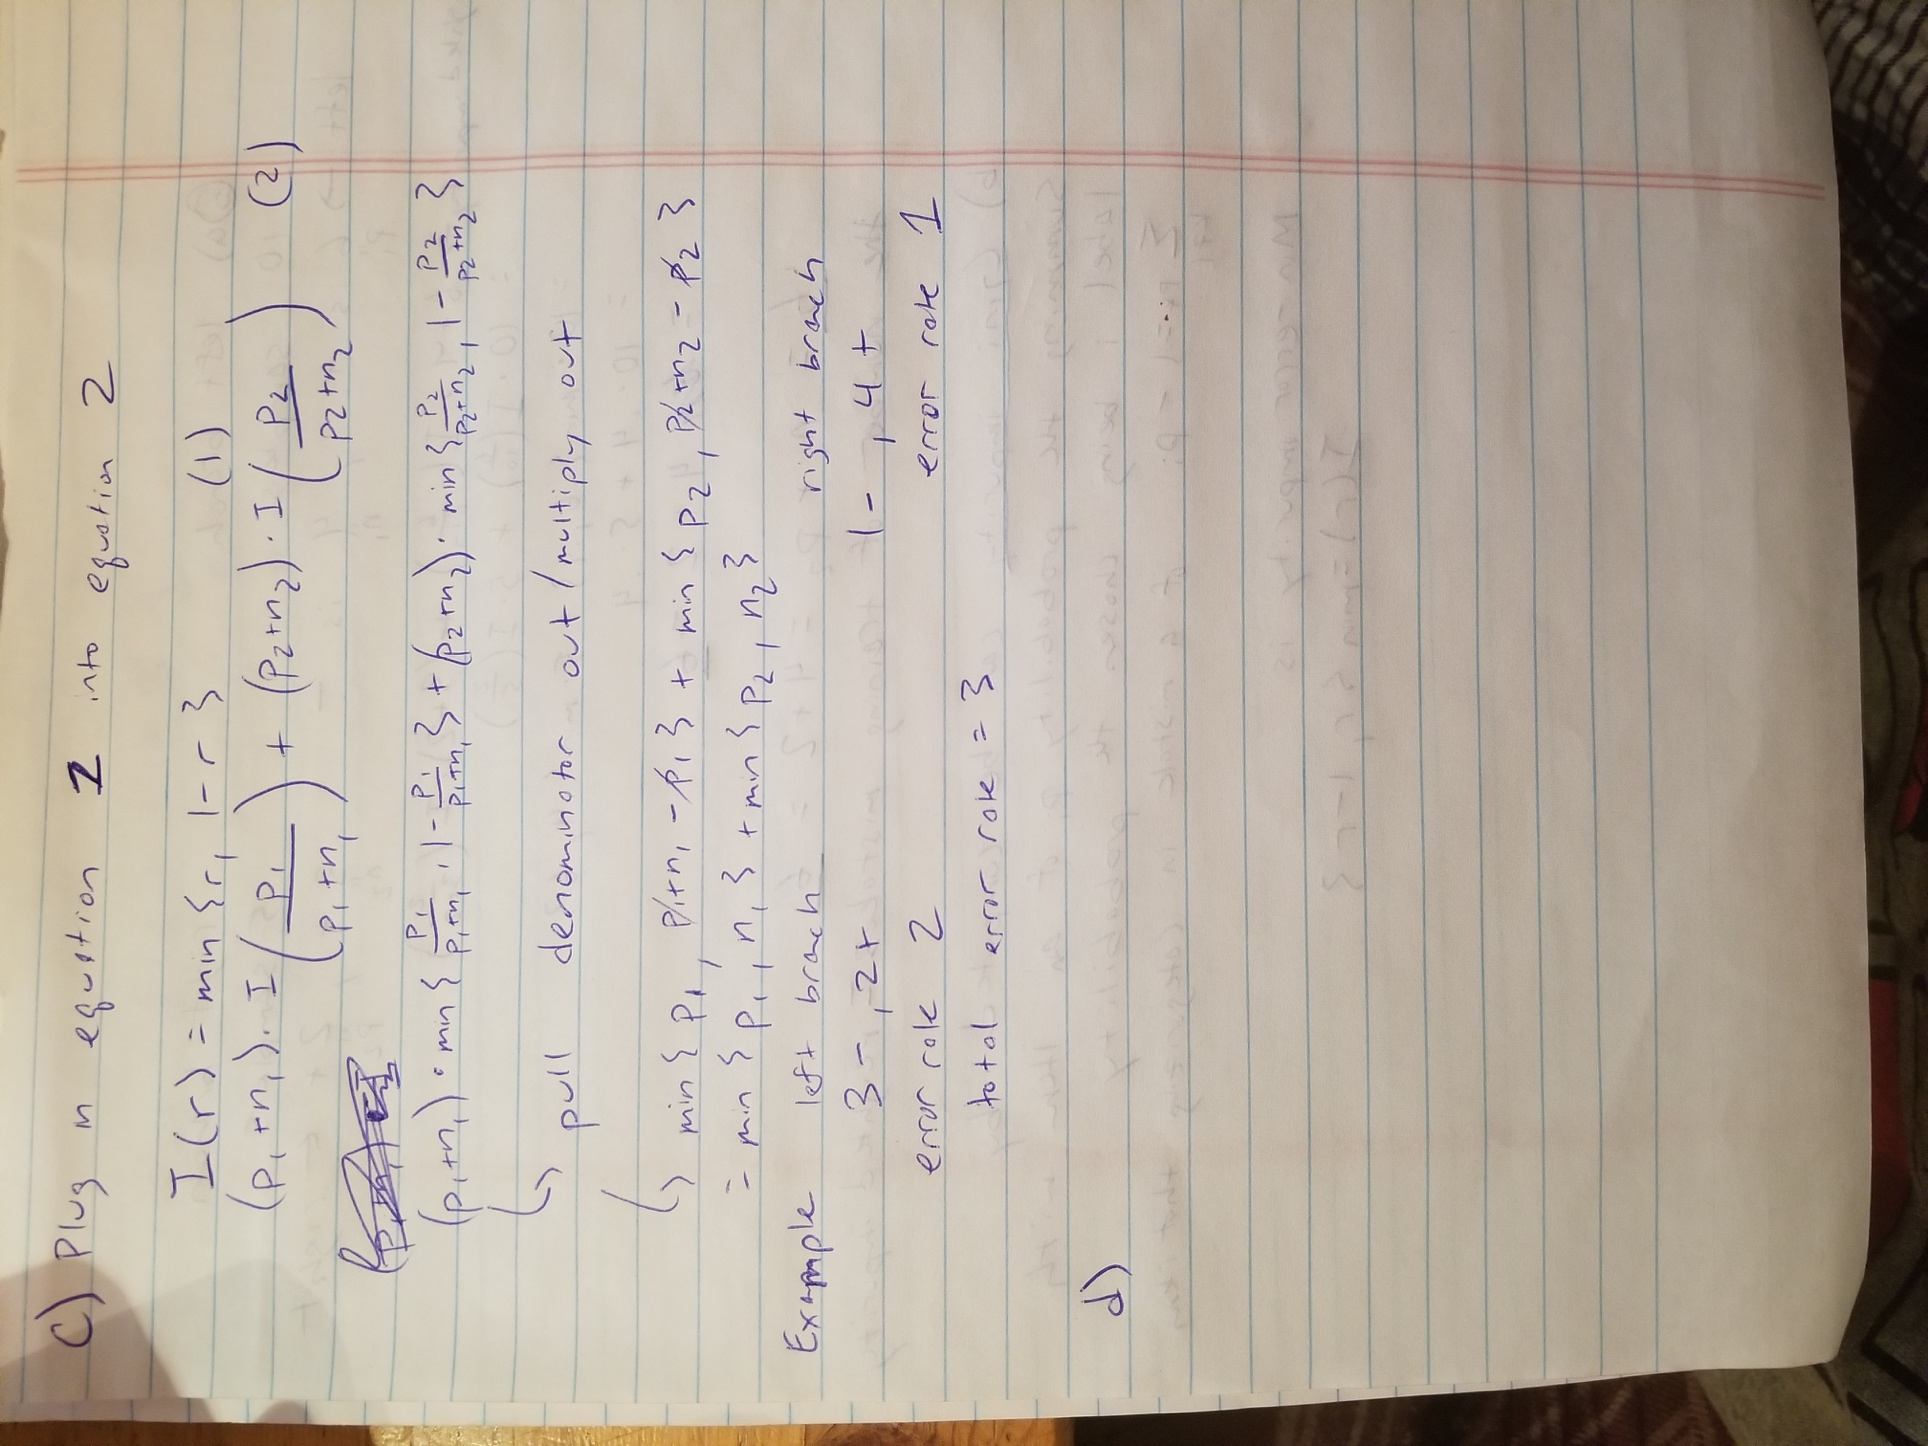 c) Plug in equation 1 into equation 2
I(r) = min{r, 1-r} (1)
(p₁+n₁)·I(p₁/(p₁+n₁)) + (p₂+n₂)·I(p₂/(p₂+n₂)) (2)
(p₁+n₁)·min{p₁/(p₁+n₁), 1-p₁/(p₁+n₁)} + (p₂+n₂)·min{p₂/(p₂+n₂), 1-p₂/(p₂+n₂)}
↳ pull denominator out/multiply out
↳ min{p₁, p₁+n₁-p₁} + min{p₂, p₂+n₂-p₂}
= min{p₁, n₁} + min{p₂, n₂}
Example left branch right branch
3-, 2+ 1-, 4+
error rate 2 error rate 1
total error rate = 3
d)